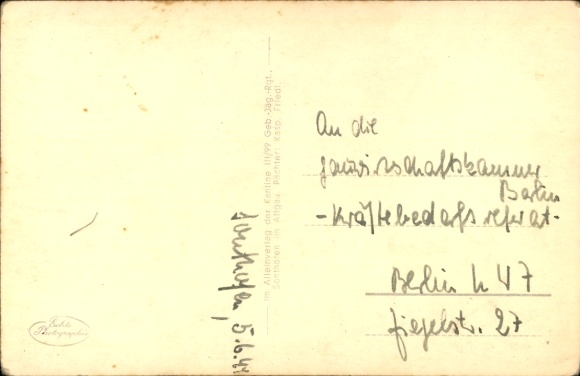 Im Alleinverlag der Kantine III/99 Geb.-Jäg.-Rgt.,
Sonthofen im Allgäu. Pächter: Kasp. Friedl.
Sonthofen, 5.6.44
An die
Gauwirtschaftskammer
Berlin
-Kräftebedarfsreferat-
Berlin N 47
Ziegelstr. 27
Echte
Photographie